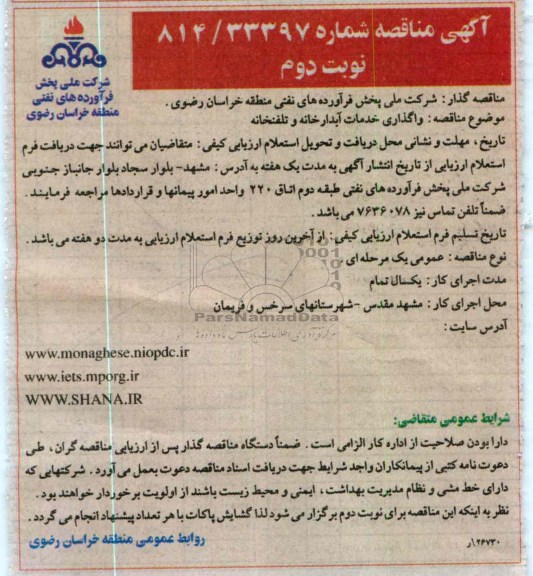 آگهی مناقصه شماره ۸۱۴/۳۳۳۹۷
نوبت دوم
شرکت ملی پخش
فرآورده های نفتی
منطقه خراسان رضوی
مناقصه گذار : شرکت ملی پخش فرآورده های نفتی منطقه خراسان رضوی .
موضوع مناقصه : واگذاری خدمات آبدارخانه و تلفنخانه
تاریخ ، مهلت و نشانی محل دریافت و تحویل استعلام ارزیابی کیفی : متقاضیان می توانند جهت دریافت فرم
استعلام ارزیابی از تاریخ انتشار آگهی به مدت یک هفته به آدرس : مشهد- بلوار سجاد بلوار جانباز جنوبی
شرکت ملی پخش فرآورده های نفتی طبقه دوم اتاق ۲۲۰ واحد امور پیمانها و قراردادها مراجعه فرمایند .
ضمناً تلفن تماس نیز ۷۶۳۶۰۷۸ می باشد .
تاریخ تسلیم فرم استعلام ارزیابی کیفی : از آخرین روز توزیع فرم استعلام ارزیابی به مدت دو هفته می باشد .
نوع مناقصه : عمومی یک مرحله ای
مدت اجرای کار : یکسال تمام
محل اجرای کار : مشهد مقدس -شهرستانهای سرخس و فریمان
ParsNamadData
آدرس سایت :
www.monaghese.niopdc.ir
www.iets.mporg.ir
WWW.SHANA.IR
شرایط عمومی متقاضی:
دارا بودن صلاحیت از اداره کار الزامی است . ضمناً دستگاه مناقصه گذار پس از ارزیابی مناقصه گران ، طی
دعوت نامه کتبی از پیمانکاران واجد شرایط جهت دریافت اسناد مناقصه دعوت بعمل می آورد . شرکتهایی که
دارای خط مشی و نظام مدیریت بهداشت ، ایمنی و محیط زیست باشند از اولویت برخوردار خواهند بود .
نظر به اینکه این مناقصه برای نوبت دوم برگزار می شود لذا گشایش پاکات با هر تعداد پیشنهاد انجام می گردد .
روابط عمومی منطقه خراسان رضوی
۲۶۷۳۰\ر